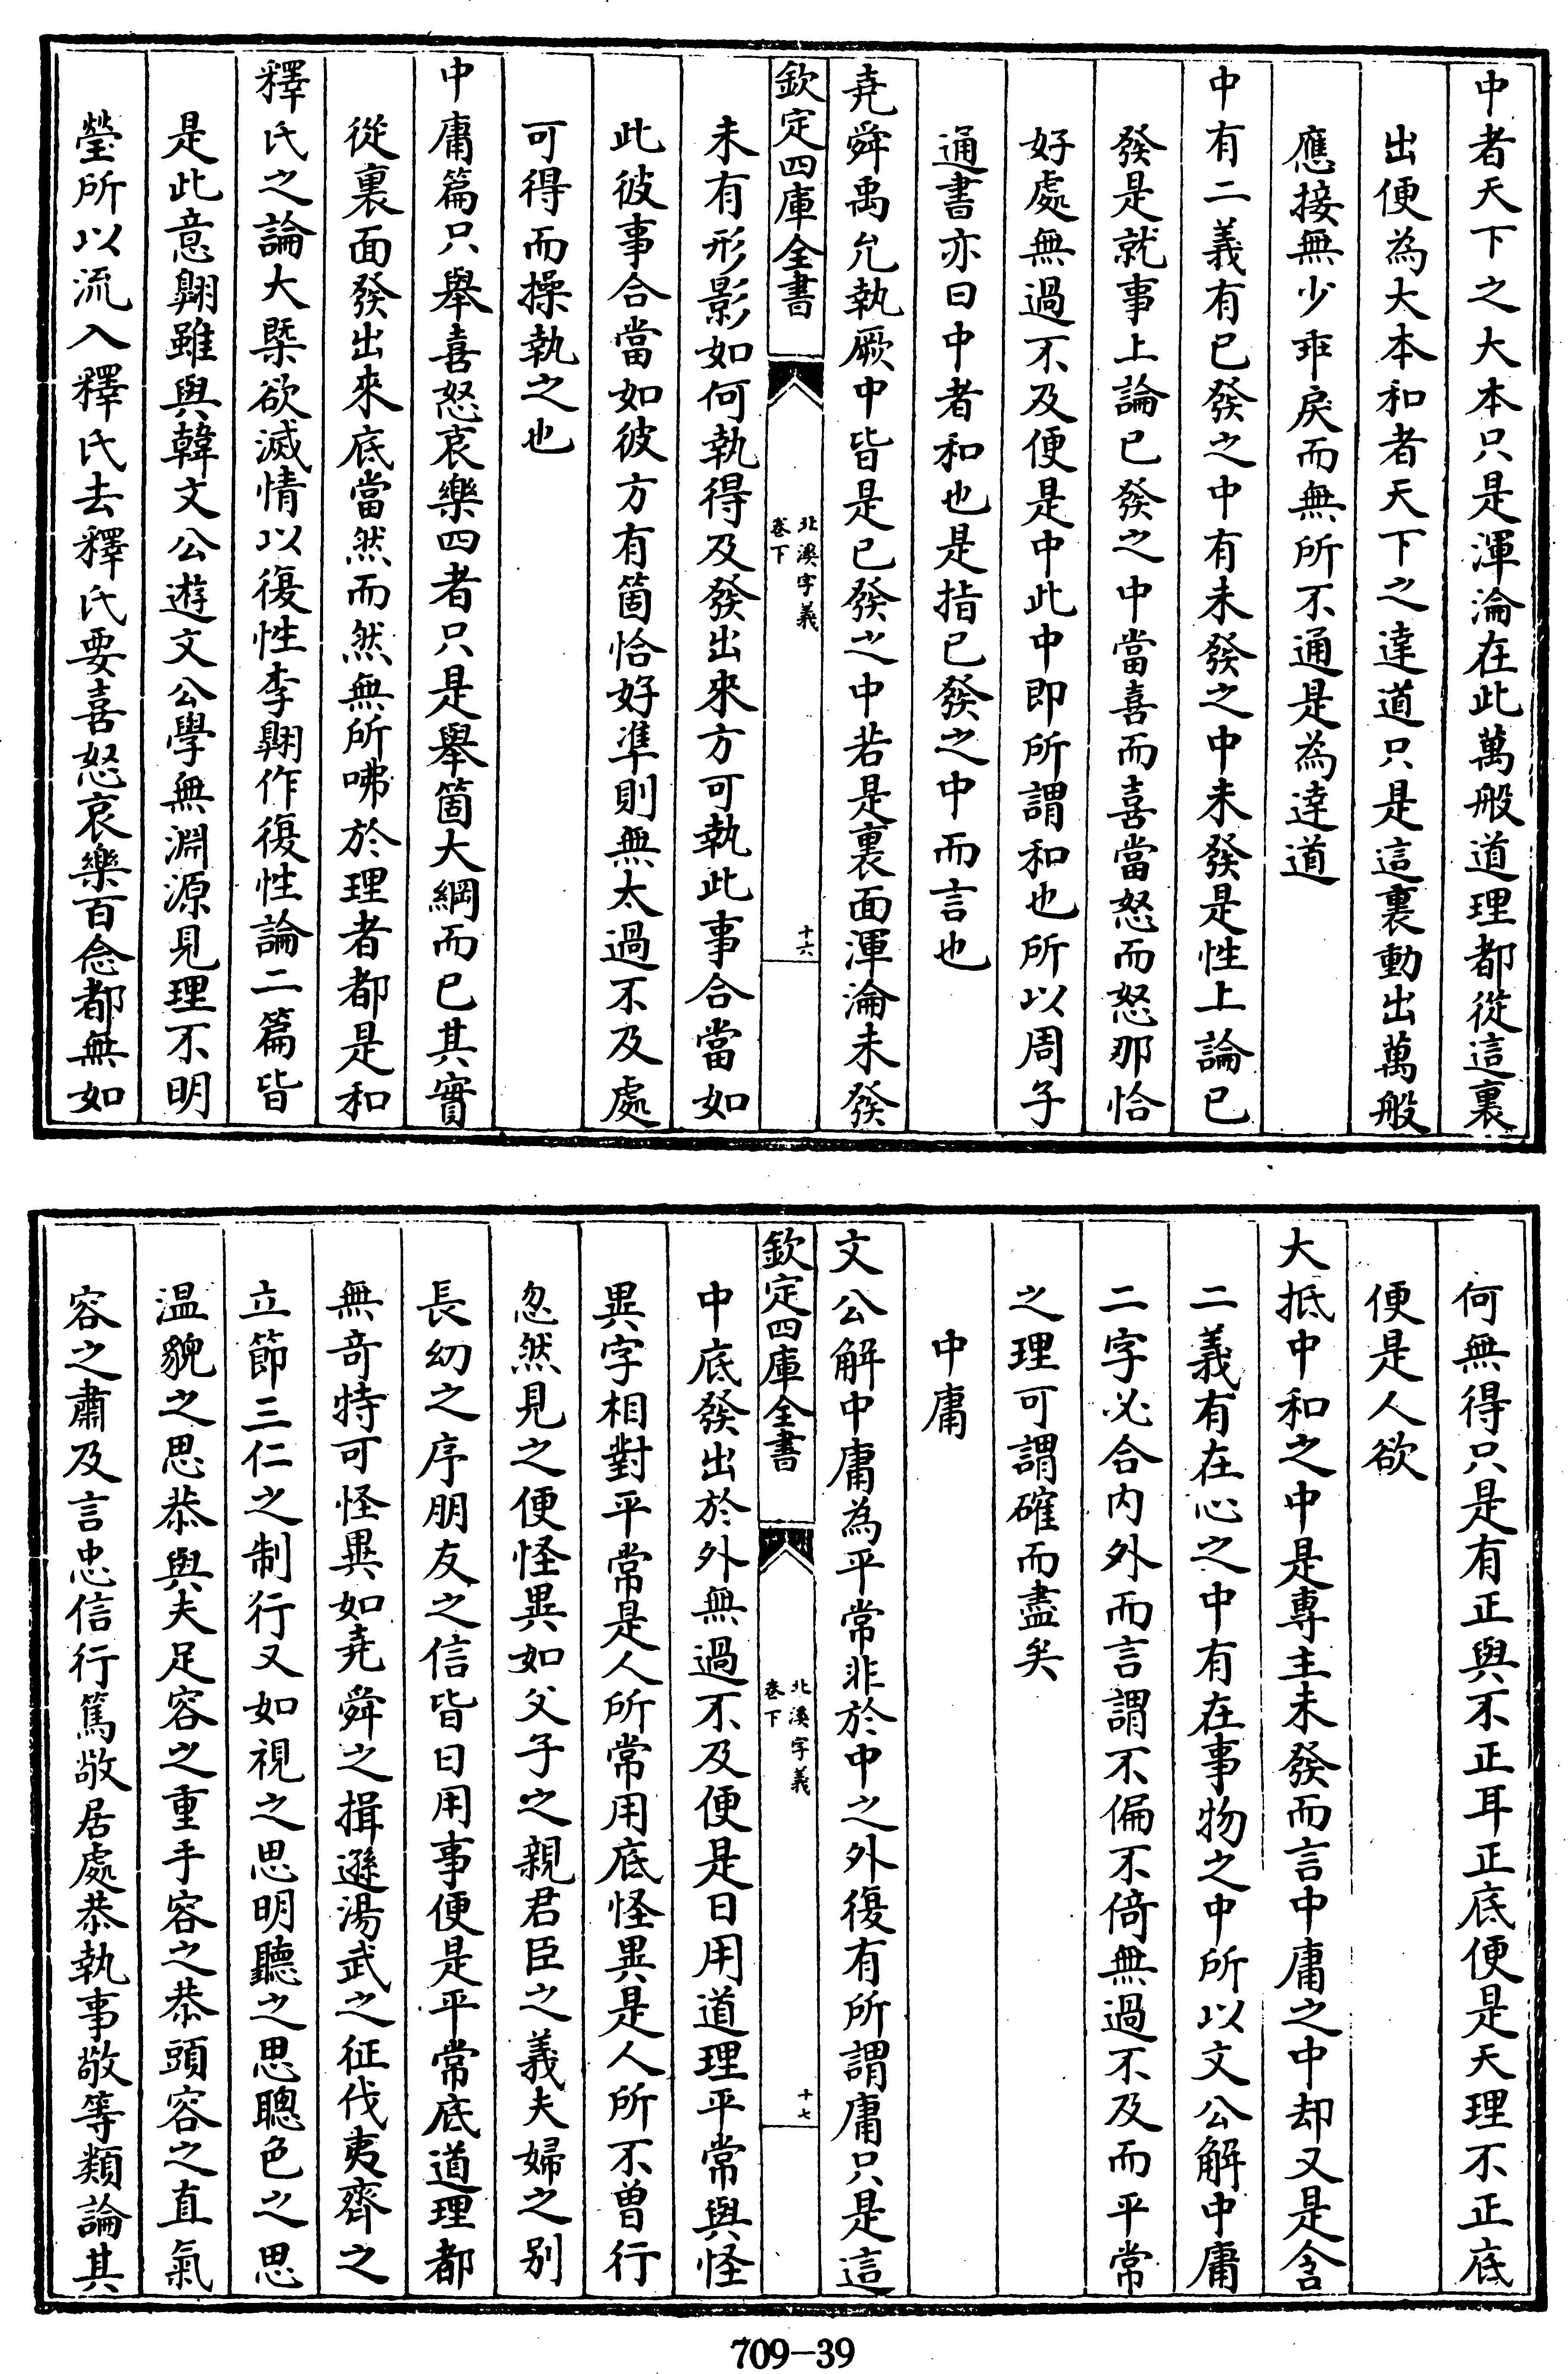 中者天下之大本只是渾淪在此萬般道理都從這裏
出便為大本和者天下之達道只是這裏動出萬般
應接無少乖戾而無所不通是為達道
中有二義有已發之中有未發之中未發是性上論已
發是就事上論已發之中當喜而喜當怒而怒那恰
好處無過不及便是中此中即所謂和也所以周子
通書亦曰中者和也是指已發之中而言也
堯舜禹允執厥中皆是已發之中若是裏面渾淪未發
欽定四庫全書
北溪字義
卷下
十六
未有形影如何執得及發出來方可執此事合當如
此彼事合當如彼方有箇恰好準則無太過不及處
可得而操執之也
中庸篇只舉喜怒哀樂四者只是舉箇大綱而已其實
從裏面發出來底當然而然無所咈於理者都是和
釋氏之論大槩欲滅情以復性李翺作復性論二篇皆
是此意翺雖與韓文公遊文公學無淵源見理不明
瑩所以流入釋氏去釋氏要喜怒哀樂百念都無如
何無得只是有正與不正耳正底便是天理不正底
便是人欲
大抵中和之中是專主未發而言中庸之中却又是含
二義有在心之中有在事物之中所以文公解中庸
二字必合內外而言謂不偏不倚無過不及而平常
之理可謂確而盡矣
中庸
文公解中庸為平常非於中之外復有所謂庸只是這
欽定四庫全書
北溪字義
卷下
十七
中底發出於外無過不及便是日用道理平常與怪
異字相對平常是人所常用底怪異是人所不曾行
忽然見之便怪異如父子之親君臣之義夫婦之别
長幼之序朋友之信皆日用事便是平常底道理都
無奇特可怪異如堯舜之揖遜湯武之征伐夷齊之
立節三仁之制行又如視之思明聽之思聰色之思
温貌之思恭與夫足容之重手容之恭頭容之直氣
容之肅及言忠信行篤敬居處恭執事敬等類論其
709-39